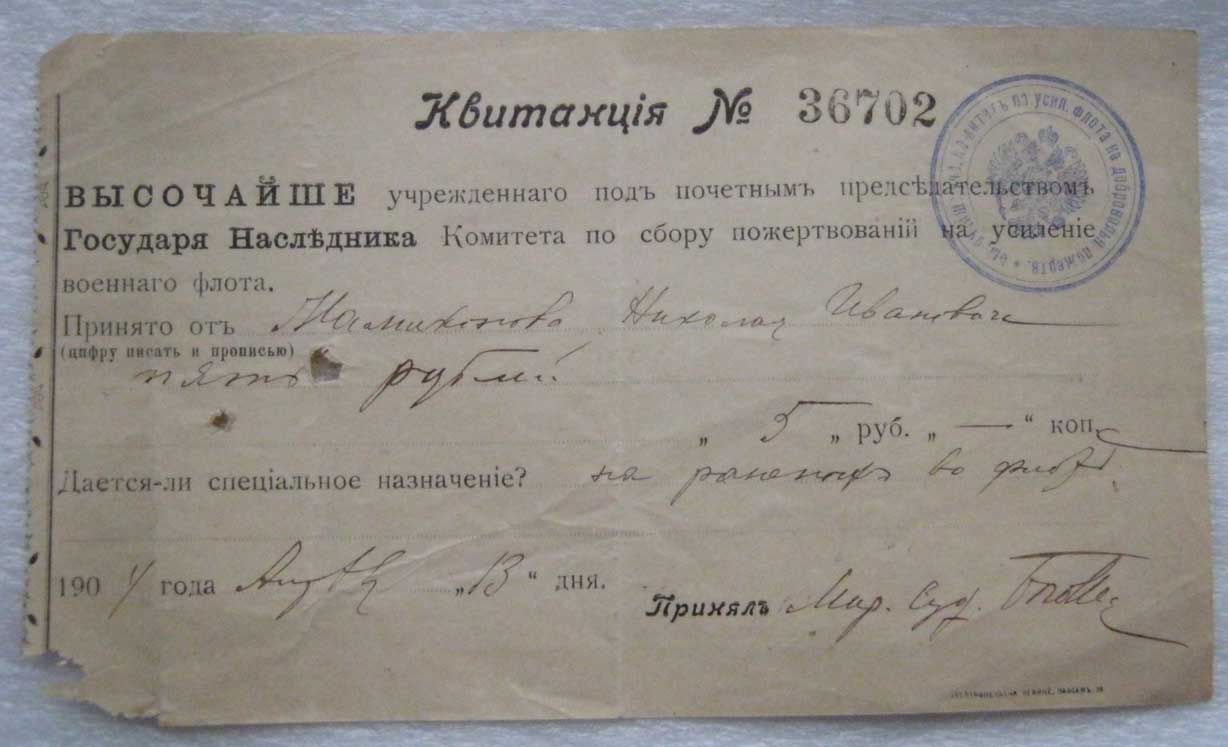 Квитанція № 36702
ВЫСОЧАЙШЕ учрежденнаго подъ почетнымъ предсѣдательствомъ
Государя Наслѣдника Комитета по сбору пожертвованій на усиленіе
военнаго флота.
Принято отъ Николая Ивановича
(цифру писать и прописью)
пять рублей
„ 5 „ руб. „ — “ коп.
Дается-ли спеціальное назначеніе? на раненыхъ во флотѣ.
1904 года „13“ дня.
Принялъ Мар. Суд.
по усил. флота на доброволья. пожертв.